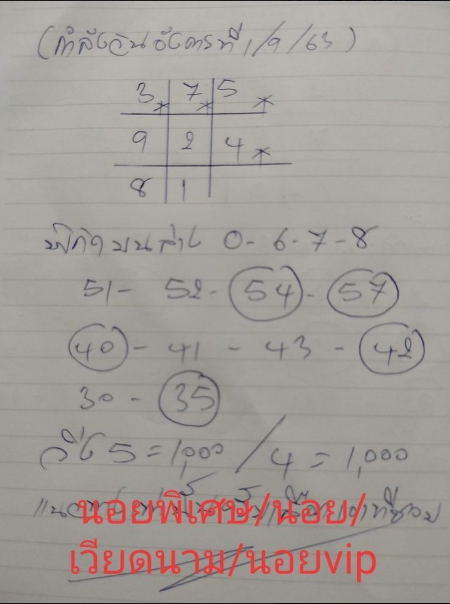 (กำลังวันอังคารที่ 1/9/63)
3* 7* 5*
9 2 4*
8 1
พิกัด บนล่าง 0-6-7-8
51- 52- 54- 57
40 - 41 - 43 - 42
30 - 35
วิ่ง 5 = 1,000 / 4 = 1,000
นอยพิเศษ/นอย/
เวียดนาม/นอยvip